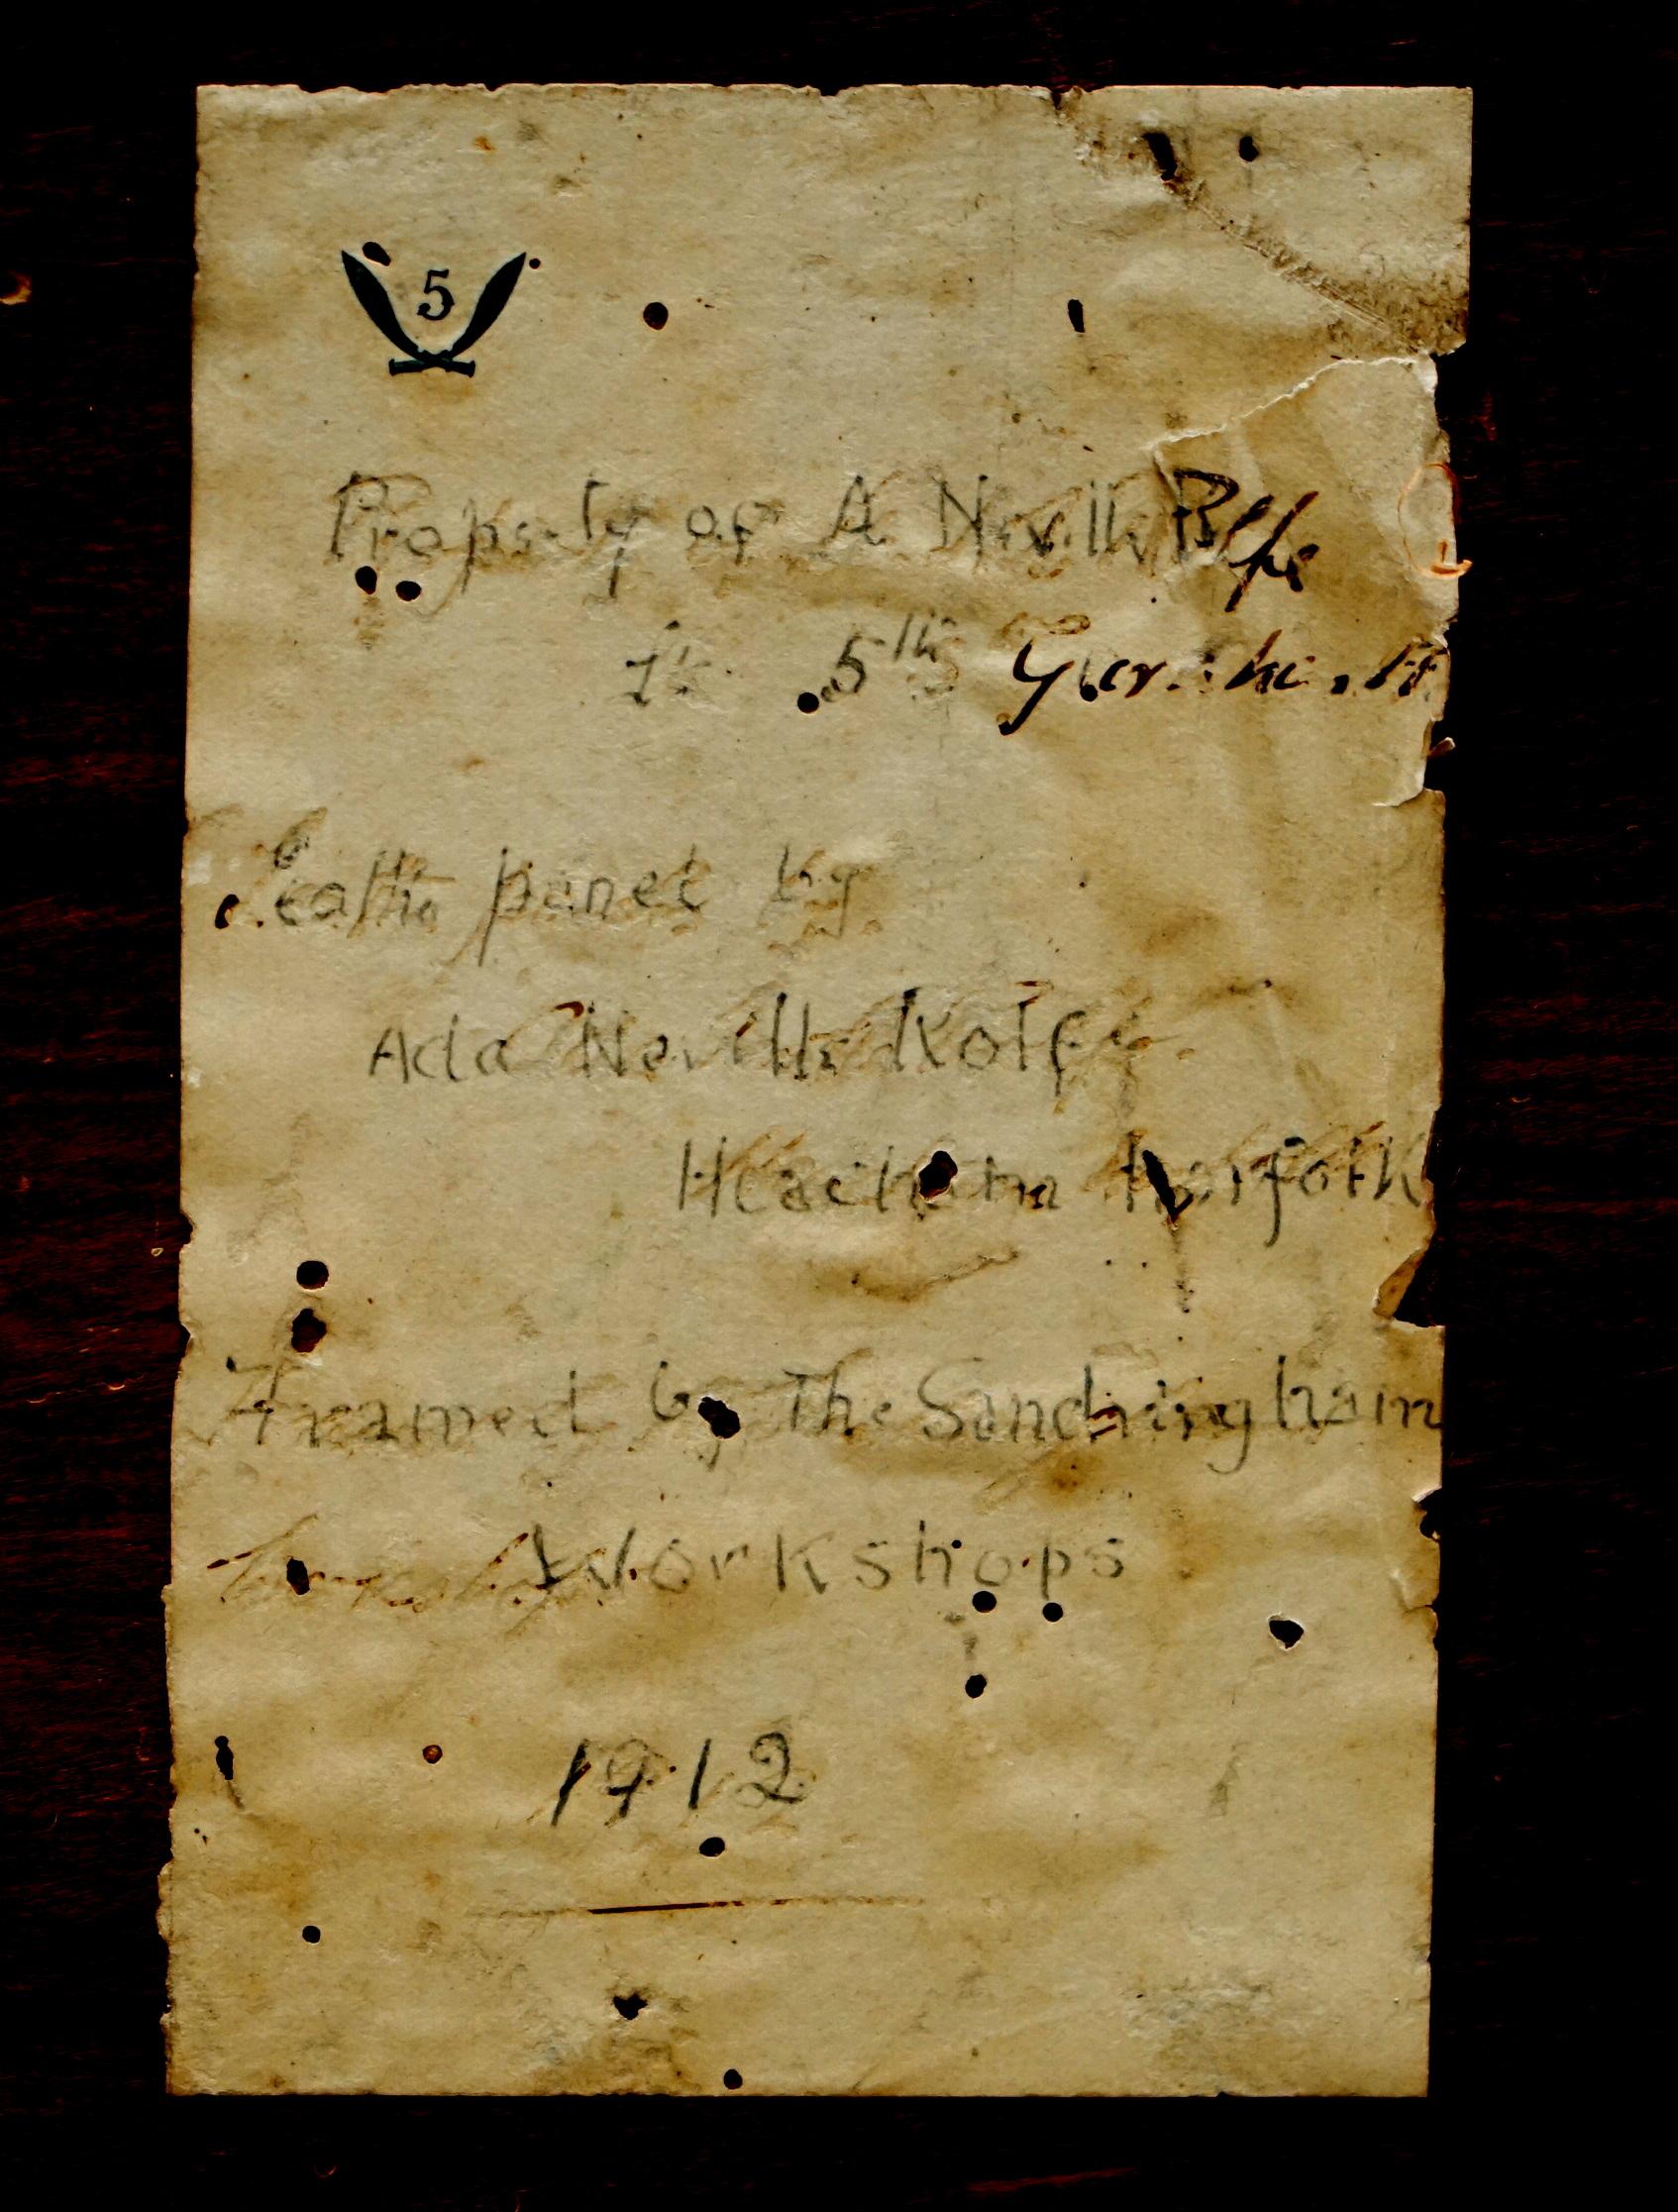 5
Property of A Neville Rolfe
5th Gurkha
Leather panel by
Ada Neville Rolfe
Heacham Norfolk
Framed by The Sandringham
Workshops
1912